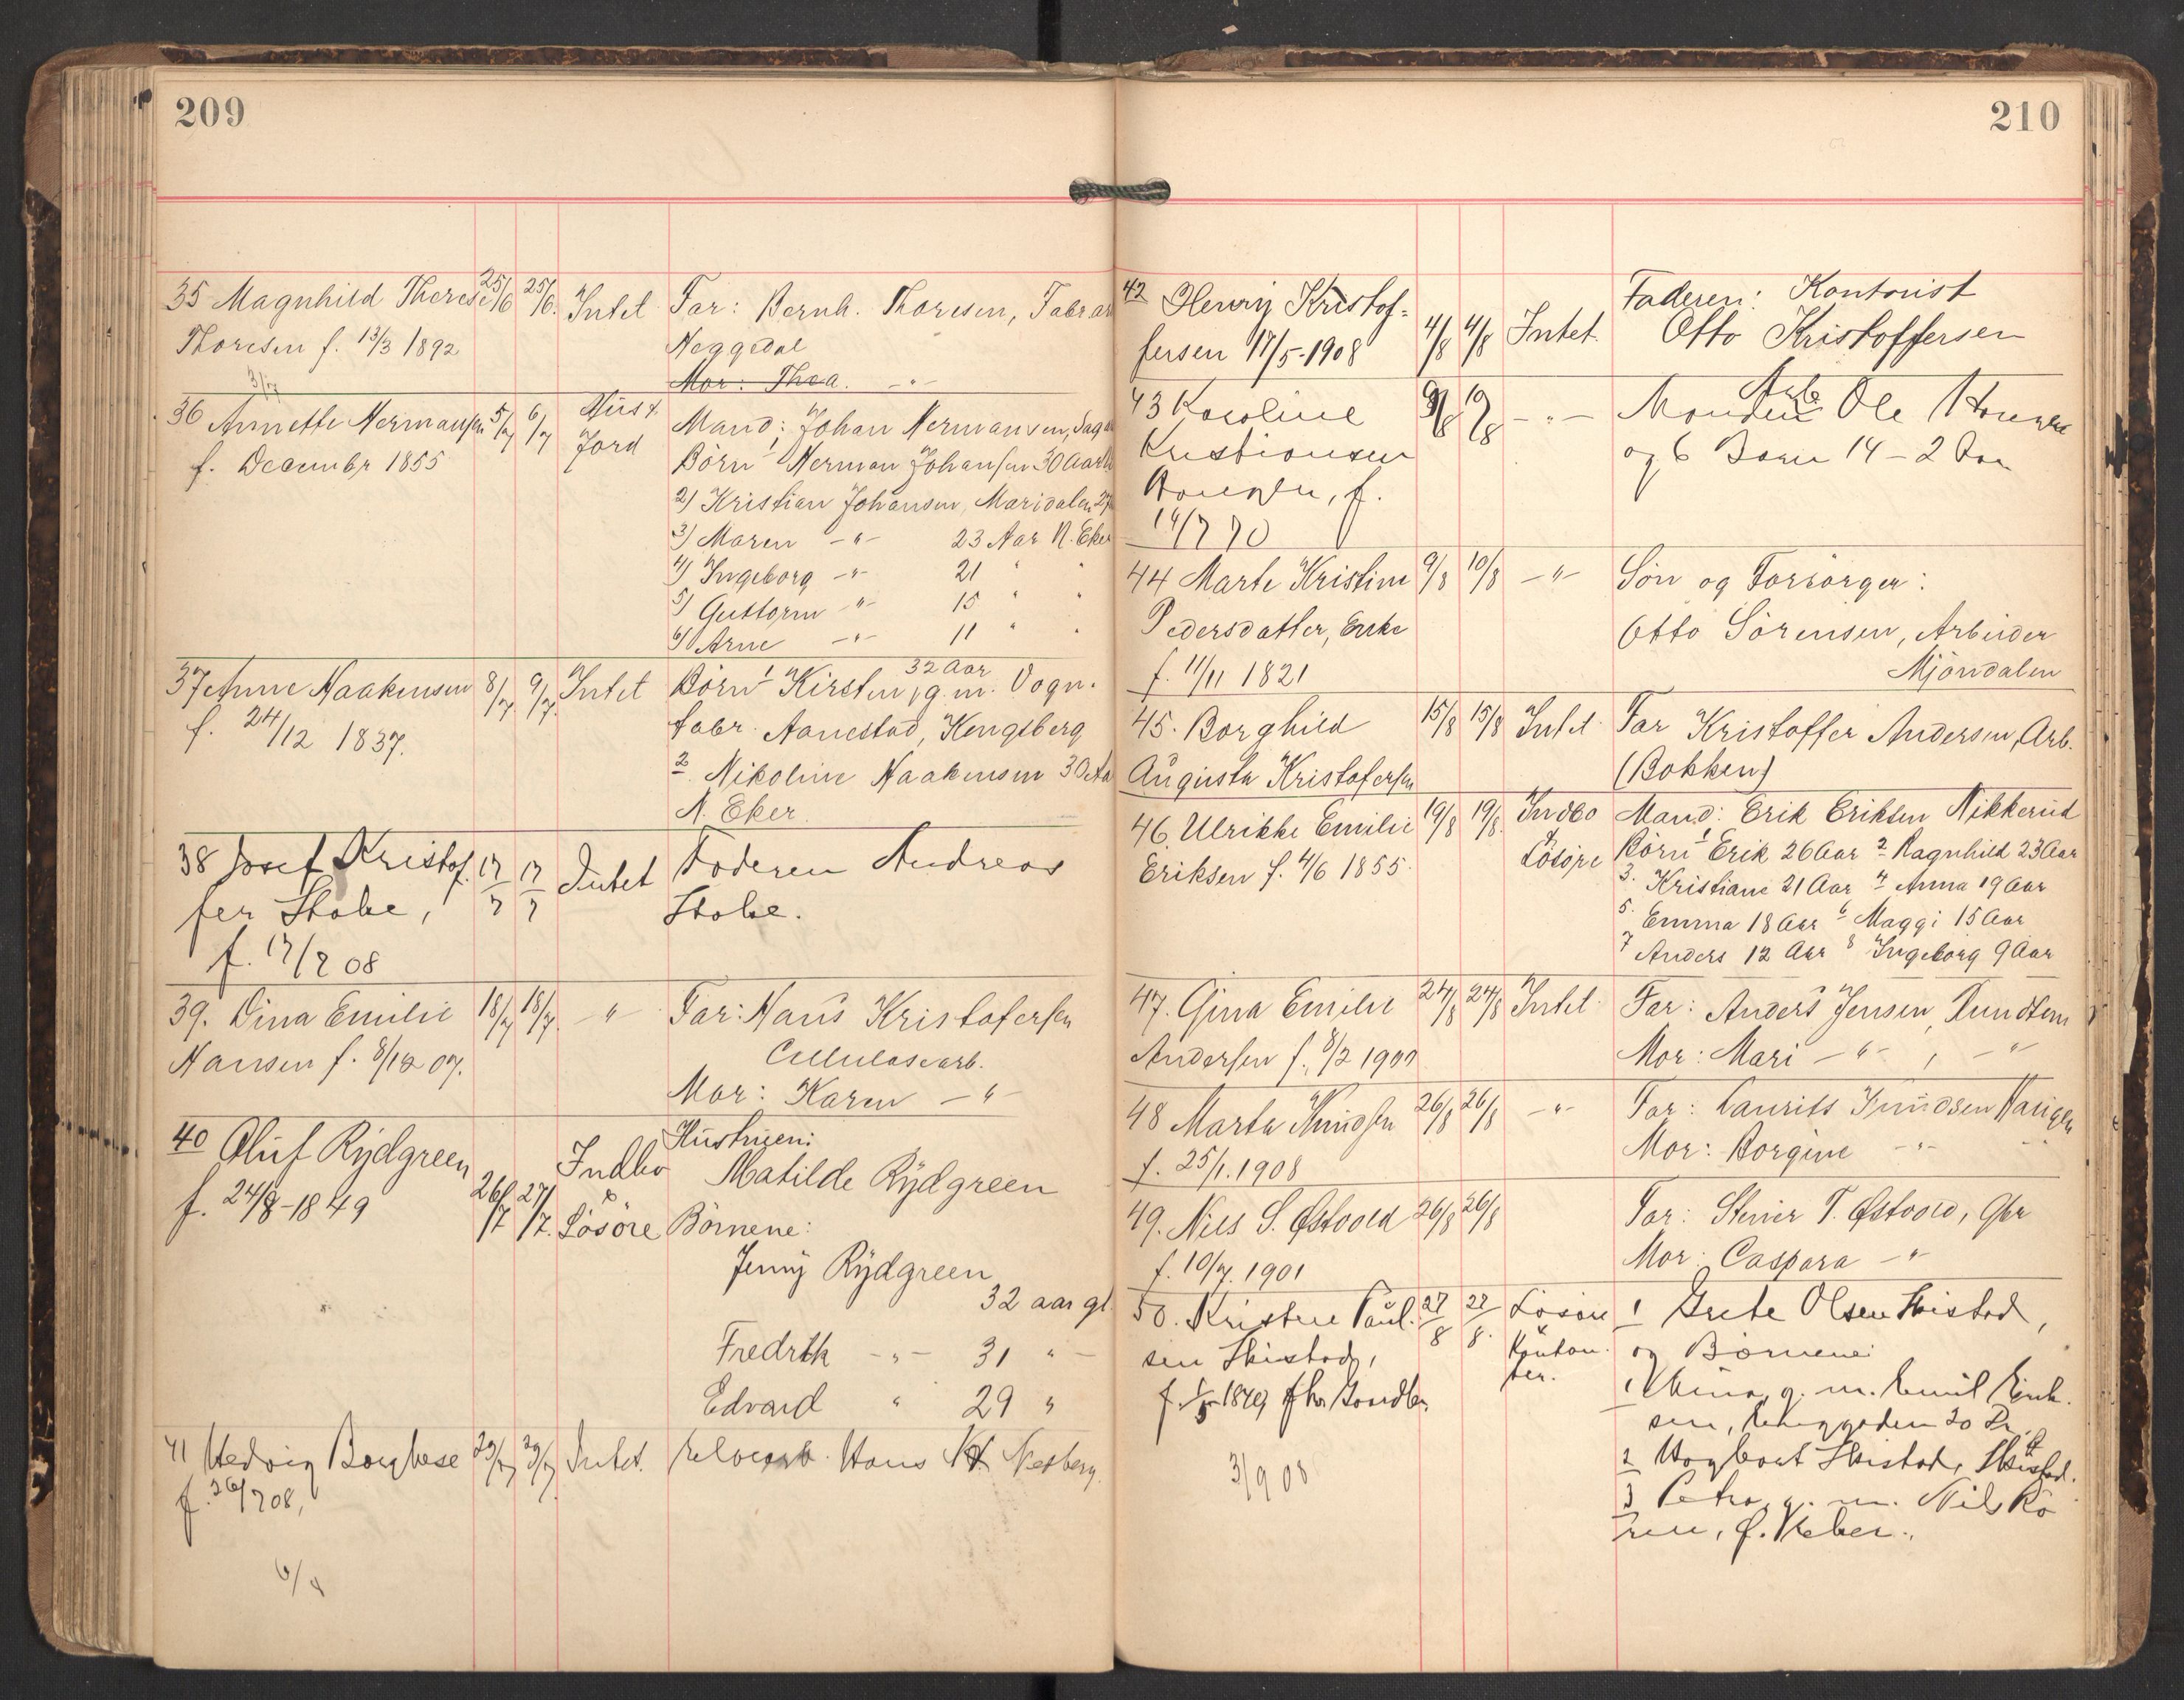 209
35 Magnhild Therese 25/6 25/6. Intet Far: Bernh. Thoresen, Fabr.ar
Thoresen f. 13/3 1892 Heggedal
Mor: Thea. -"-
3/7
36 Annette Hermansen 5/7 6/7 Hus & Mand: Johan Hermansen, Sag
f. Decembr 1855 Jord Börn 1 Herman Johansen 30 Aar
2) Kristian Johansen, Maridalen 27
3) Maren -"- 23 Aar N. Eker
4) Ingeborg -"- 21 " "
5) Guttorm -"- 15 " "
6) Arne -"- 11 " "
37 Anne Haakensen 8/7 9/7. Intet Börn 1 Kirsten, 32 Aar g. m. Vogn.
f. 24/12 1837. fabr. Aanestad, Kongsberg
2. Nikoline Haakensen 30 Aa
N. Eker.
38 Josef Kristof. 17/7 17/7 Intet Faderen Andreas
fer Stabe, Stabe.
f. 17/7 08
39. Dina Emilie 18/7 18/7. -"- Far: Hans Kristofersen
Hansen f. 8/12 07. Cellulosearb.
Mor: Karen -"-
40 Oluf Rydgreen Hustruen:
f. 24/8-1849 26/7 27/7. Indbo & Lösöre Matilde Rydgreen
Börnene:
Jenny Rydgreen
32 aar gl.
Fredrik -"- 31 " -
Edvard " 29 "
41 Hedvig Borghese 29/7 29/7 Intet. Hans Nesberg.
f. 26/7 08,
6/8
210
42 Henry Kristof- 4/8 4/8 Intet. Faderen: Kontorist
fersen 17/5-1908 Otto Kristoffersen
43 Karoline 9/8 10/8 -"- Manden Arb. Ole
Kristiansen og 6 Barn 14-2 Aar
f.
14/7 70
44 Marte Kristine 9/8 10/8 -"- Sön og Forsörger:
Pedersdatter, Enke Otto Sörensen, Arbeider
f. 11/11 1821 Mjöndalen
45. Borghild 15/8 15/8 Intet. Far Kristoffer Andersen, Arb.
Augusta Kristofersen (Bokken)
46. Ulrikke Emilie 19/8 19/8. Indbo & Mand: Erik Eriksen Nikkerud
Eriksen f. 4/6 1855. Lösöre Börn 1 Erik 26 Aar 2 Ragnhild 23 Aar
3. Kristiane 21 Aar 4 Anna 19 Aar
5. Emma 18 Aar 6 Maggi 15 Aar
7 Anders 12 Aar 8 Ingeborg 9 Aar
47. Gina Emilie 24/8 24/8 Intet. Far: Anders Jensen,
Andersen f. 8/2 1907 Mor: Mari -"- , -"-
48 Marta Knudsen 26/8 26/8 -"- Far: Laurits Knudsen Haugen
f. 25/1. 1908 Mor: Borgine -"-
49. Niels S. Østvold 26/8 26/8 Far: Steiner T. Østvold, Gbr
f. 10/7. 1901 Mor: Caspara -"-
50. Kristine Paul. 27/8 27/8. Lösöre 1 Grete Olsen Skistad,
sen Skistad, Kontan- og Börnene:
f. 1849 ter. 1 g. m. Emil Erik.
sen,
2 Skistad, Skistad.
3 Petra, g. m. Nils
3/9 08